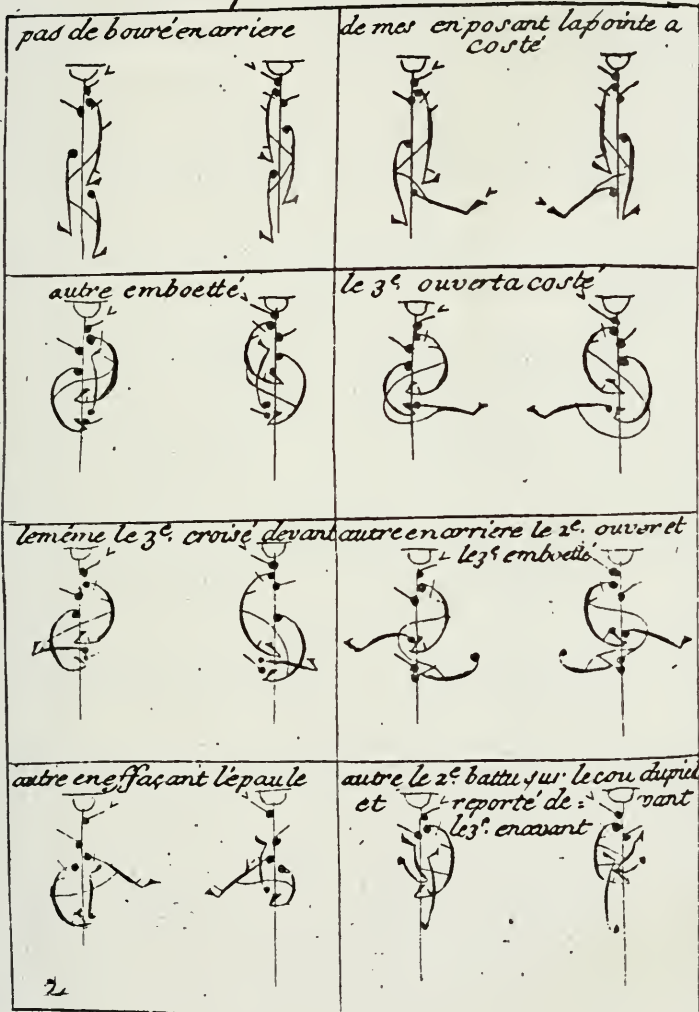 pas de bouré en arriere
de mes en posant la pointe a
costé
autre emboetté
le 3.e ouvert a costé
le méme le 3.e croisé devant
autre en arriere le 2.e ouver et
le 3.e emboetté
autre en effaçant l'épaule
autre le 2.e battu sur le cou du pied
et reporté de = vant
le 3.e en avant
2